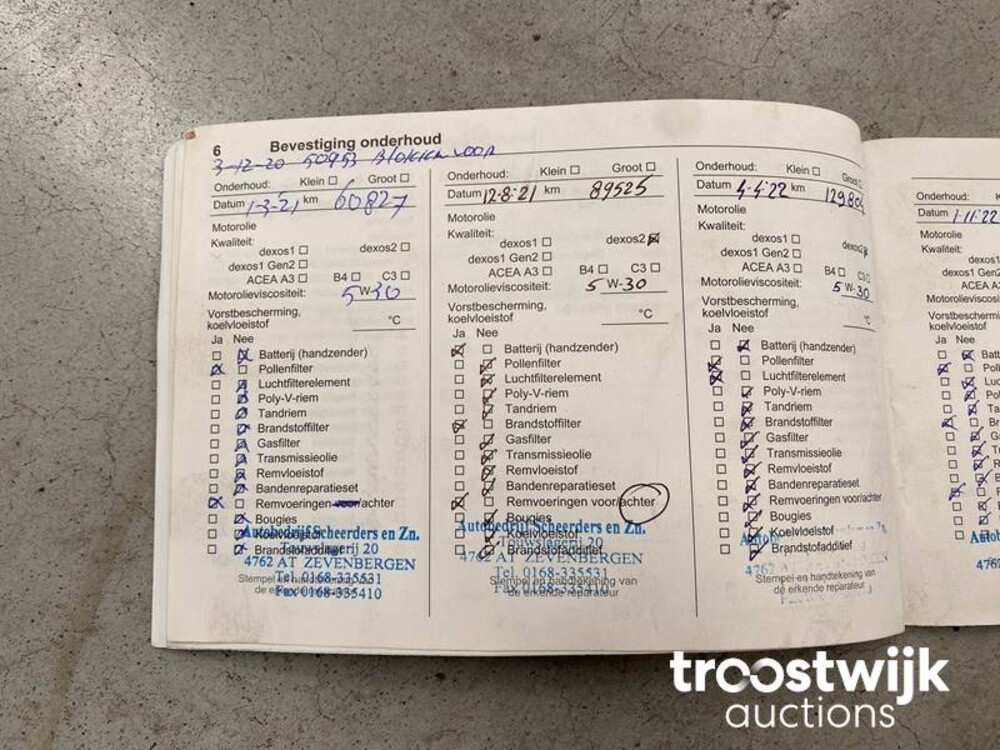 6 Bevestiging onderhoud
3-12-20 50953 Blokken voor
Onderhoud: Klein Groot
Datum 1-3-21 km 60827
Motorolie
Kwaliteit:
dexos1 dexos2
dexos1 Gen2
ACEA A3 B4 C3
Motorolieviscositeit: 5W-30
Vorstbescherming,
koelvloeistof °C
Ja Nee
Batterij (handzender)
Pollenfilter
Luchtfilterelement
Poly-V-riem
Tandriem
Brandstoffilter
Gasfilter
Transmissieolie
Remvloeistof
Bandenreparatieset
Remvoeringen voor/achter
Bougies
Koelvloeistof
Brandstofadditief
Autobedrijf Scheerders en Zn.
Touwslagerij 20
4762 AT ZEVENBERGEN
Tel. 0168-335531
Fax 0168-335410
Stempel en handtekening van
de erkende reparateur
Onderhoud: Klein Groot
Datum 12-8-21 km 89525
Motorolie
Kwaliteit:
dexos1 dexos2
dexos1 Gen2
ACEA A3 B4 C3
Motorolieviscositeit: 5W-30
Vorstbescherming,
koelvloeistof °C
Ja Nee
Batterij (handzender)
Pollenfilter
Luchtfilterelement
Poly-V-riem
Tandriem
Brandstoffilter
Gasfilter
Transmissieolie
Remvloeistof
Bandenreparatieset
Remvoeringen voor/achter
Bougies
Koelvloeistof
Brandstofadditief
Autobedrijf Scheerders en Zn.
Touwslagerij 20
4762 AT ZEVENBERGEN
Tel. 0168-335531
Fax 0168-335410
Stempel en handtekening van
de erkende reparateur
Onderhoud: Klein Groot
Datum 4-4-22 km
Motorolie
Kwaliteit:
dexos1 dexos2
dexos1 Gen2
ACEA A3 B4 C3
Motorolieviscositeit: 5W-30
Vorstbescherming,
koelvloeistof °C
Ja Nee
Batterij (handzender)
Pollenfilter
Luchtfilterelement
Poly-V-riem
Tandriem
Brandstoffilter
Gasfilter
Transmissieolie
Remvloeistof
Bandenreparatieset
Remvoeringen voor/achter
Bougies
Koelvloeistof
Brandstofadditief
4762
Stempel en handtekening van
de erkende reparateur
Onderhoud:
Datum 1-11-22
Motorolie
Kwaliteit:
dexos1
ACEA A
Ja Nee
troostwijk
auctions